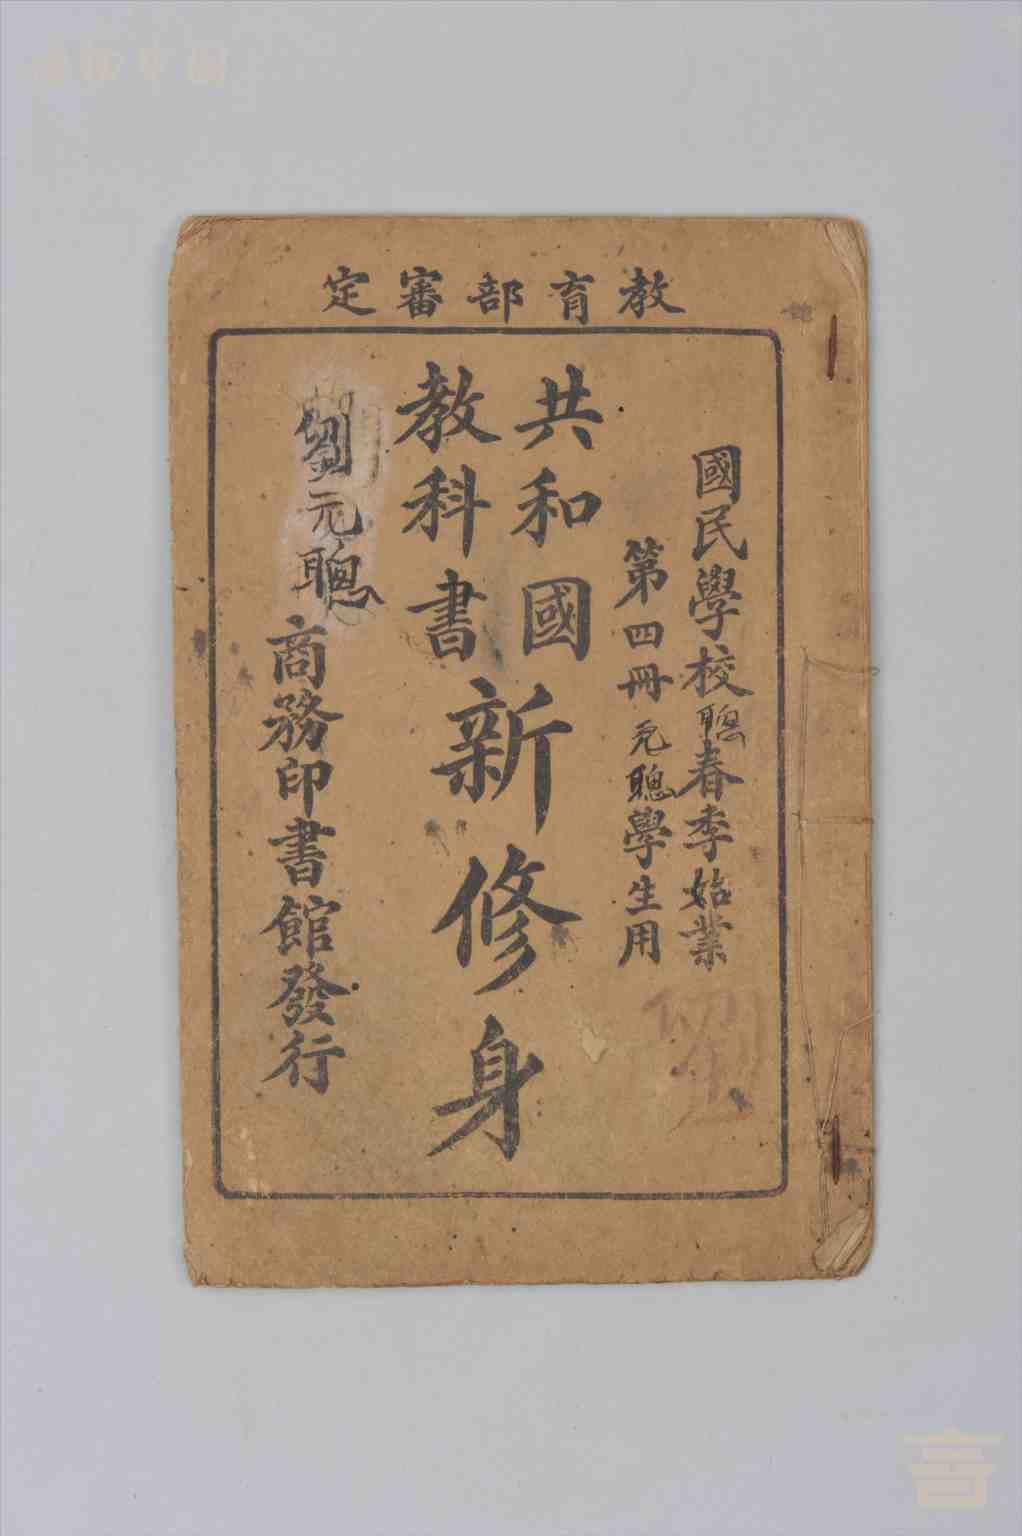 教育部審定
國民學校聰春季始業
第四冊元聰學生用
共和國
教科書
新修身
劉元聰
商務印書館發行
劉